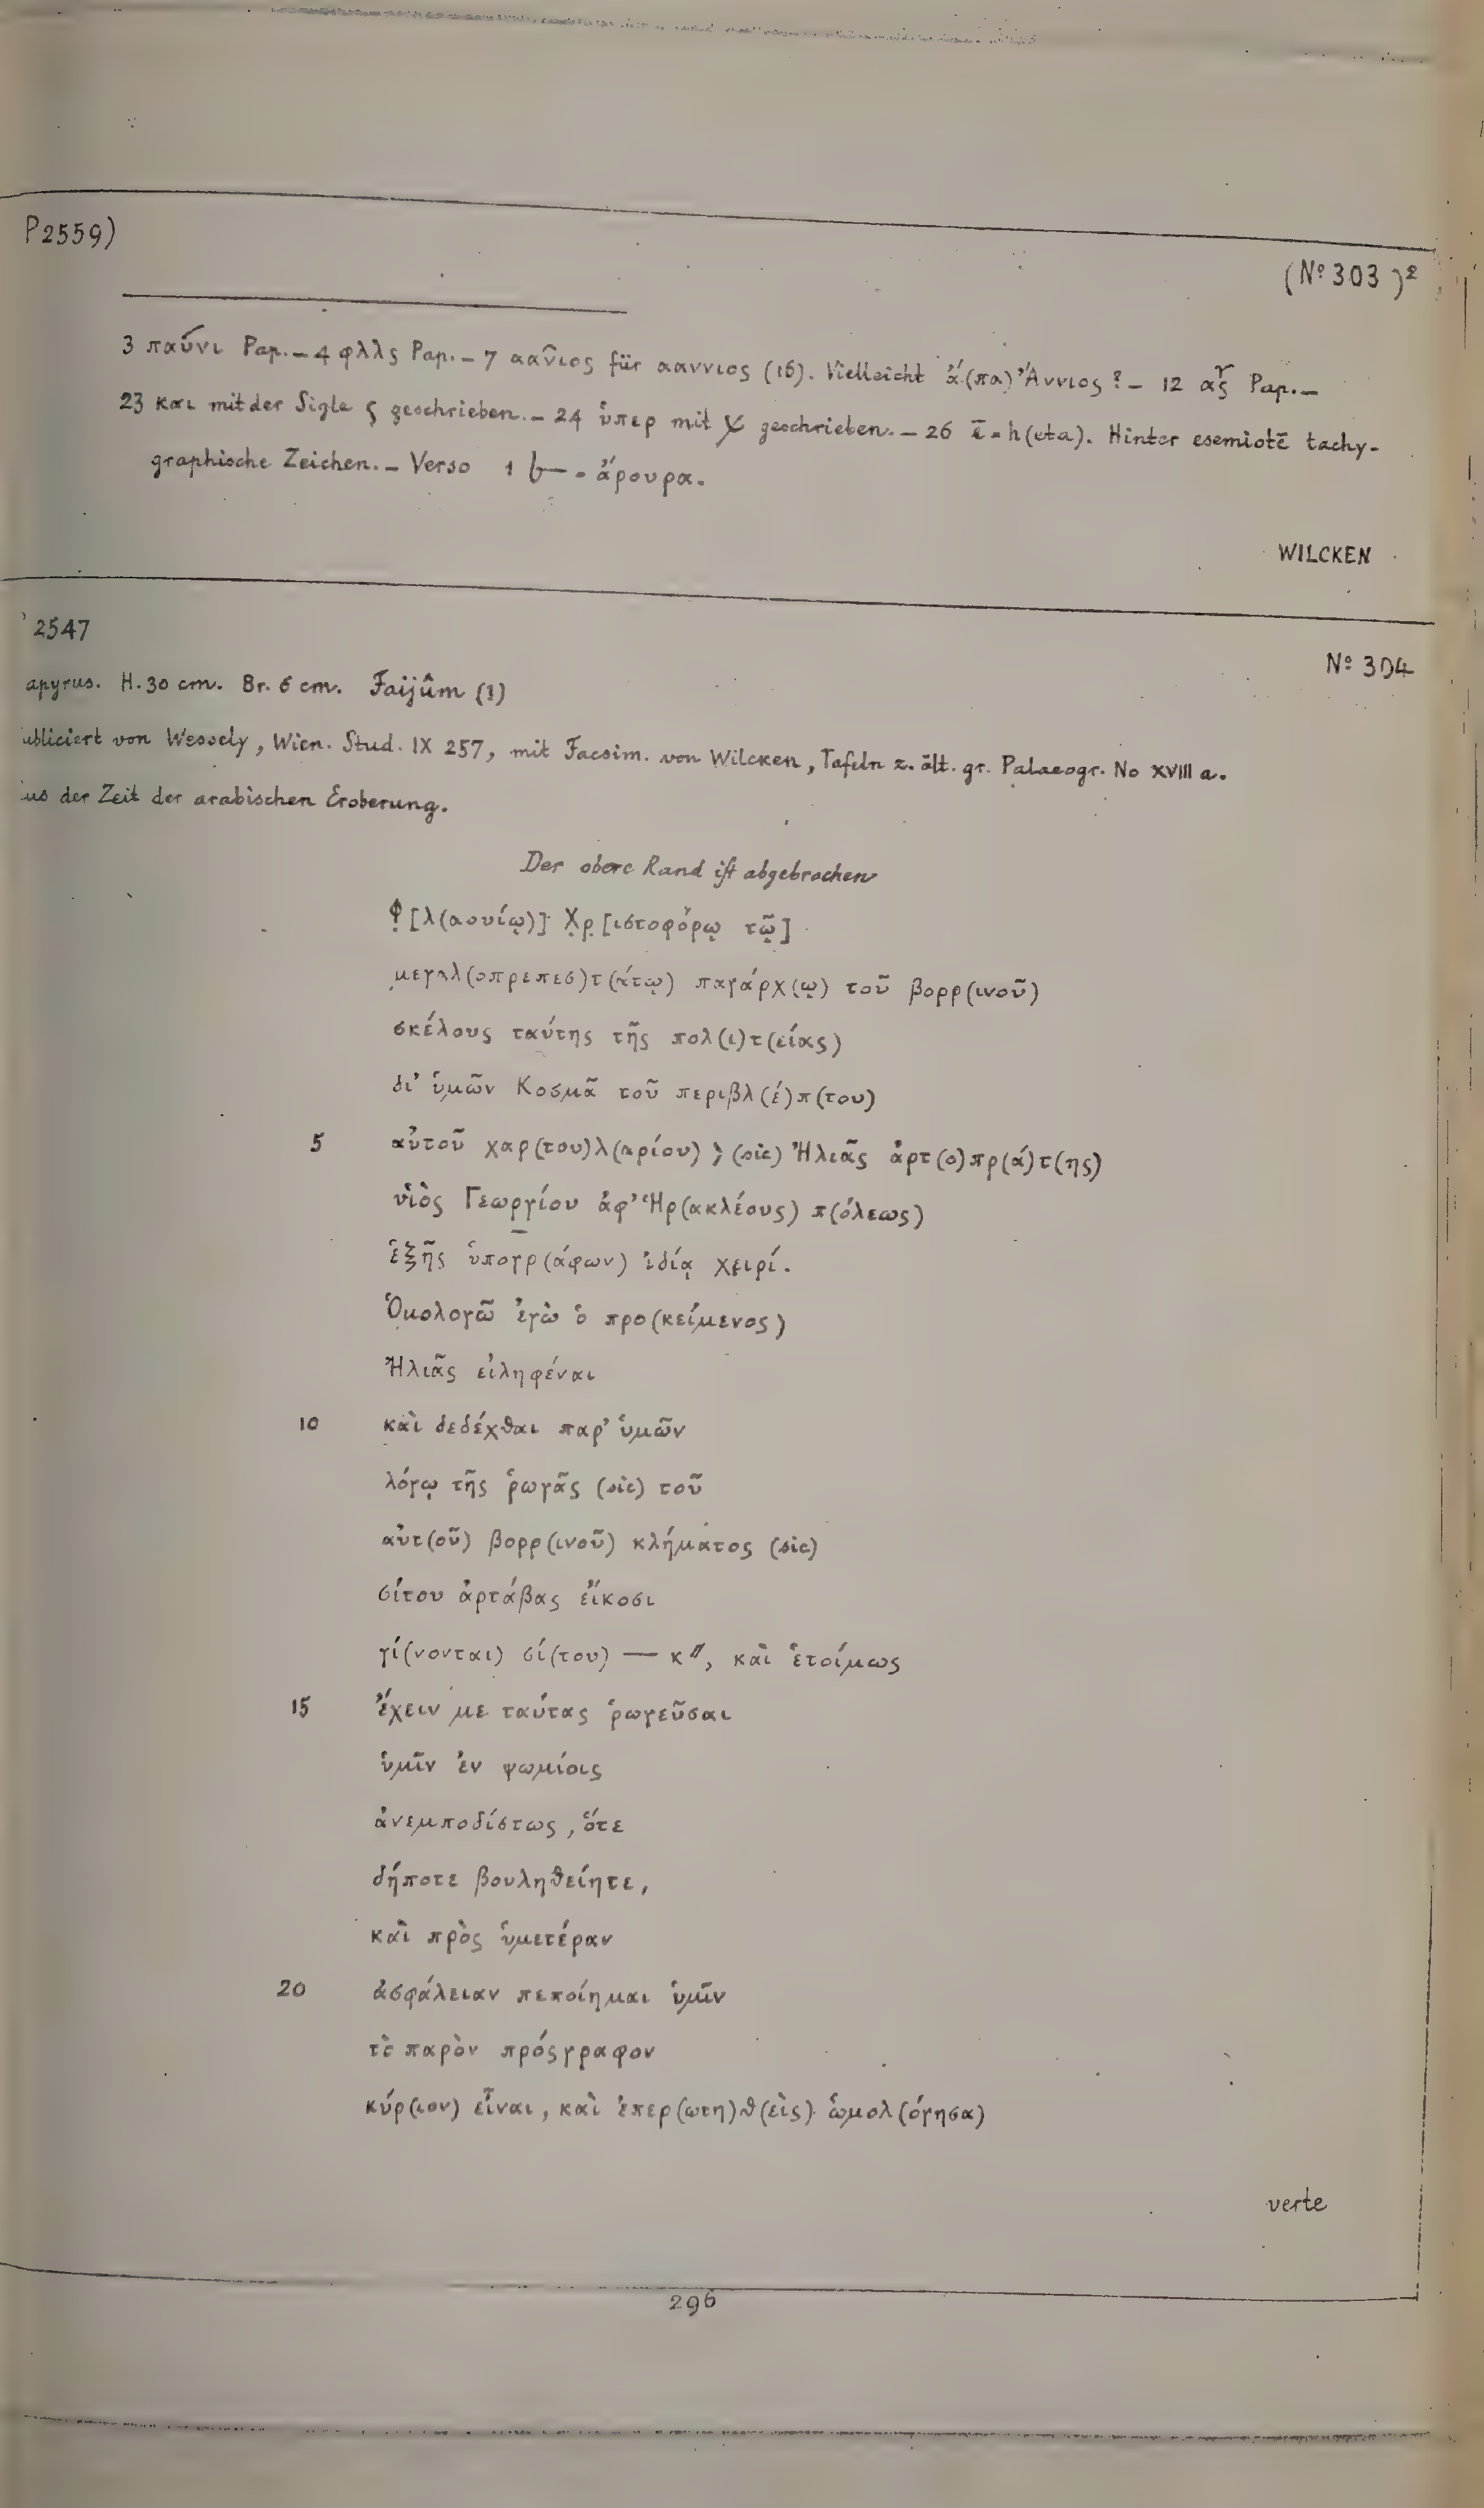 P2559)
(No 303)²
3 παῦνι Pap. – 4 φλλς Pap. – 7 ααν̄ιος für ααννιος (16). Vielleicht ἄ(πα) Ἄννιος? – 12 Pap. –
23 και mit der Sigle ς geschrieben. – 24 ὑπερ mit geschrieben. – 26 ē = h(eta). Hinter esemiotē tachy-
graphische Zeichen. – Verso 1 = ἄρουρα.
WILCKEN
2547
No 304
apyrus. H. 30 cm. Br. 6 cm. Faijûm (?)
ubliciert von Wessely, Wien. Stud. IX 257, mit Facsim. von Wilcken, Tafeln z. ält. gr. Palaeogr. No XVIII a.
us der Zeit der arabischen Eroberung.
Der obere Rand ist abgebrochen
Φ̣[λ(αουίῳ)] Χ̣ρ̣[ιστοφόρῳ τῷ]
μεγαλ(οπρεπεσ)τ(άτῳ) παγάρχ(ῳ) τοῦ βορρ(ινοῦ)
σκέλους ταύτης τῆς πολ(ι)τ(είας)
δι’ ὑμῶν Κοσμᾶ τοῦ περιβλ(έ)π(του)
5 αὐτοῦ χαρ(του)λ(αρίου) (sic) Ἠλιᾶς ἀρτ(ο)πρ(ά)τ(ης)
υἱὸς Γεωργίου ἀφ’ Ἡρ(ακλέους) π(όλεως)
ἑξῆς ὑπογρ(άφων) ἰδίᾳ χειρί.
Ὁμολογῶ ἐγὼ ὁ προ(κείμενος)
Ἠλιᾶς εἰληφέναι
10 καὶ δεδέχθαι παρ’ ὑμῶν
λόγῳ τῆς ῥωγᾶς (sic) τοῦ
αὐτ(οῦ) βορρ(ινοῦ) κλήματος (sic)
σίτου ἀρτάβας εἴκοσι
γί(νονται) σί(του) — κ〃, καὶ ἑτοίμως
15 ἔχειν με ταύτας ῥωγεῦσαι
ὑμῖν ἐν ψωμίοις
ἀνεμποδίστως, ὅτε
δήποτε βουληθείητε,
καὶ πρὸς ὑμετέραν
20 ἀσφάλειαν πεποίημαι ὑμῖν
τὸ παρὸν πρόςγραφον
κύρ(ιον) εἶναι, καὶ ἐπερ(ωτη)θ(εὶς) ὡμολ(όγησα)
verte
296